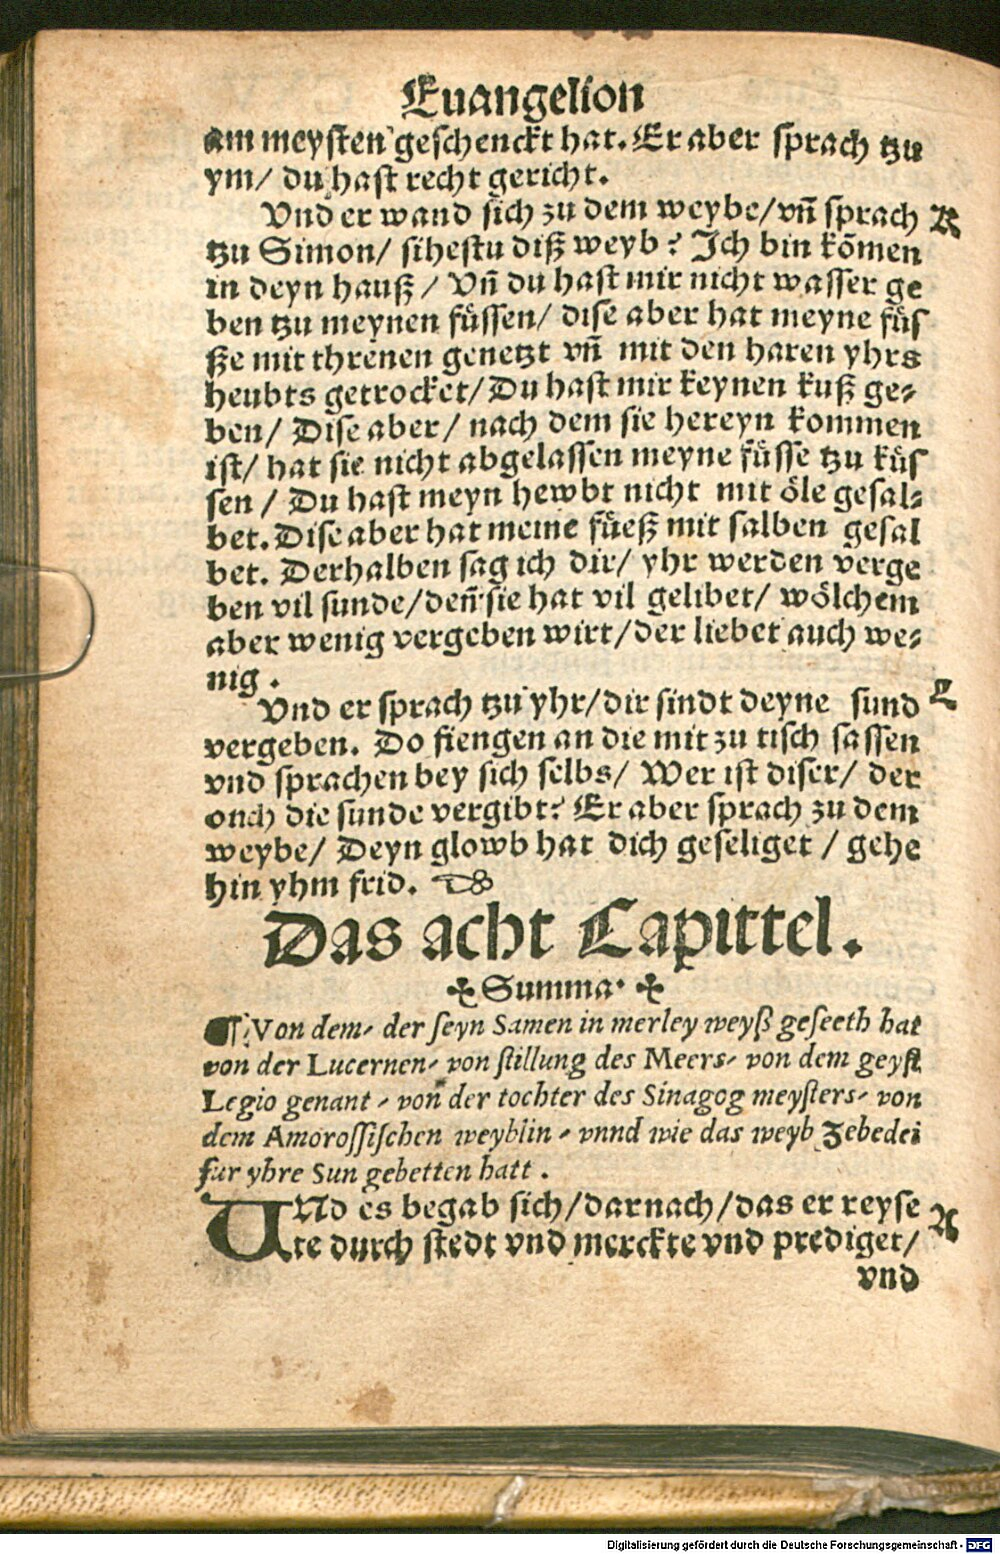 Euangelion
am meysten geschenckt hat. Er aber sprach tzu
ym/ du hast recht gericht.
Vnd er wand sich zu dem weybe/ vñ sprach K
tzu Simon/ sihestu diß weyb? Ich bin kõmen
in deyn hauß / Vñ du hast mir nicht wasser ge
ben tzu meynen fuͤssen/ dise aber hat meyne fuͤs
ße mit threnen genetzt vñ mit den haren yhrs
heubts getrocket/ Du hast mir keynen kuß ge⸗
ben/ Dise aber/ nach dem sie hereyn kommen
ist/ hat sie nicht abgelassen meyne fuͤsse tzu kuͤs
sen / Du hast meyn hewbt nicht mit oͤle gesal⸗
bet. Dise aber hat meine fuͤeß mit salben gesal
bet. Derhalben sag ich dir/ yhr werden verge
ben vil sunde/ deñ sie hat vil gelibet/ woͤlchem
aber wenig vergeben wirt/ der liebet auch we⸗
nig.
Vnd er sprach tzu yhr/ dir sindt deyne sund L
vergeben. Do fiengen an die mit zu tisch sassen
vnd sprachen bey sich selbs/ Wer ist diser/ der
ouch die sunde vergibt? Er aber sprach zu dem
weybe/ Deyn glowb hat dich geseliget / gehe
hin yhm frid.
Das acht Capittel.
✣ Summa. ✣
¶ Von dem, der seyn Samen in merley weyß geseeth hat
von der Lucernen, von stillung des Meers, von dem geyst
Legio genant, von der tochter des Sinagog meysters, von
dem Amorossischen weyblin, vnnd wie das weyb Zebedei
fur yhre Sun gebetten hatt.
VNd es begab sich/ darnach/ das er reyse A
te durch stedt vnd merckte vnd prediget/
vnd
Digitalisierung gefördert durch die Deutsche Forschungsgemeinschaft - DFG